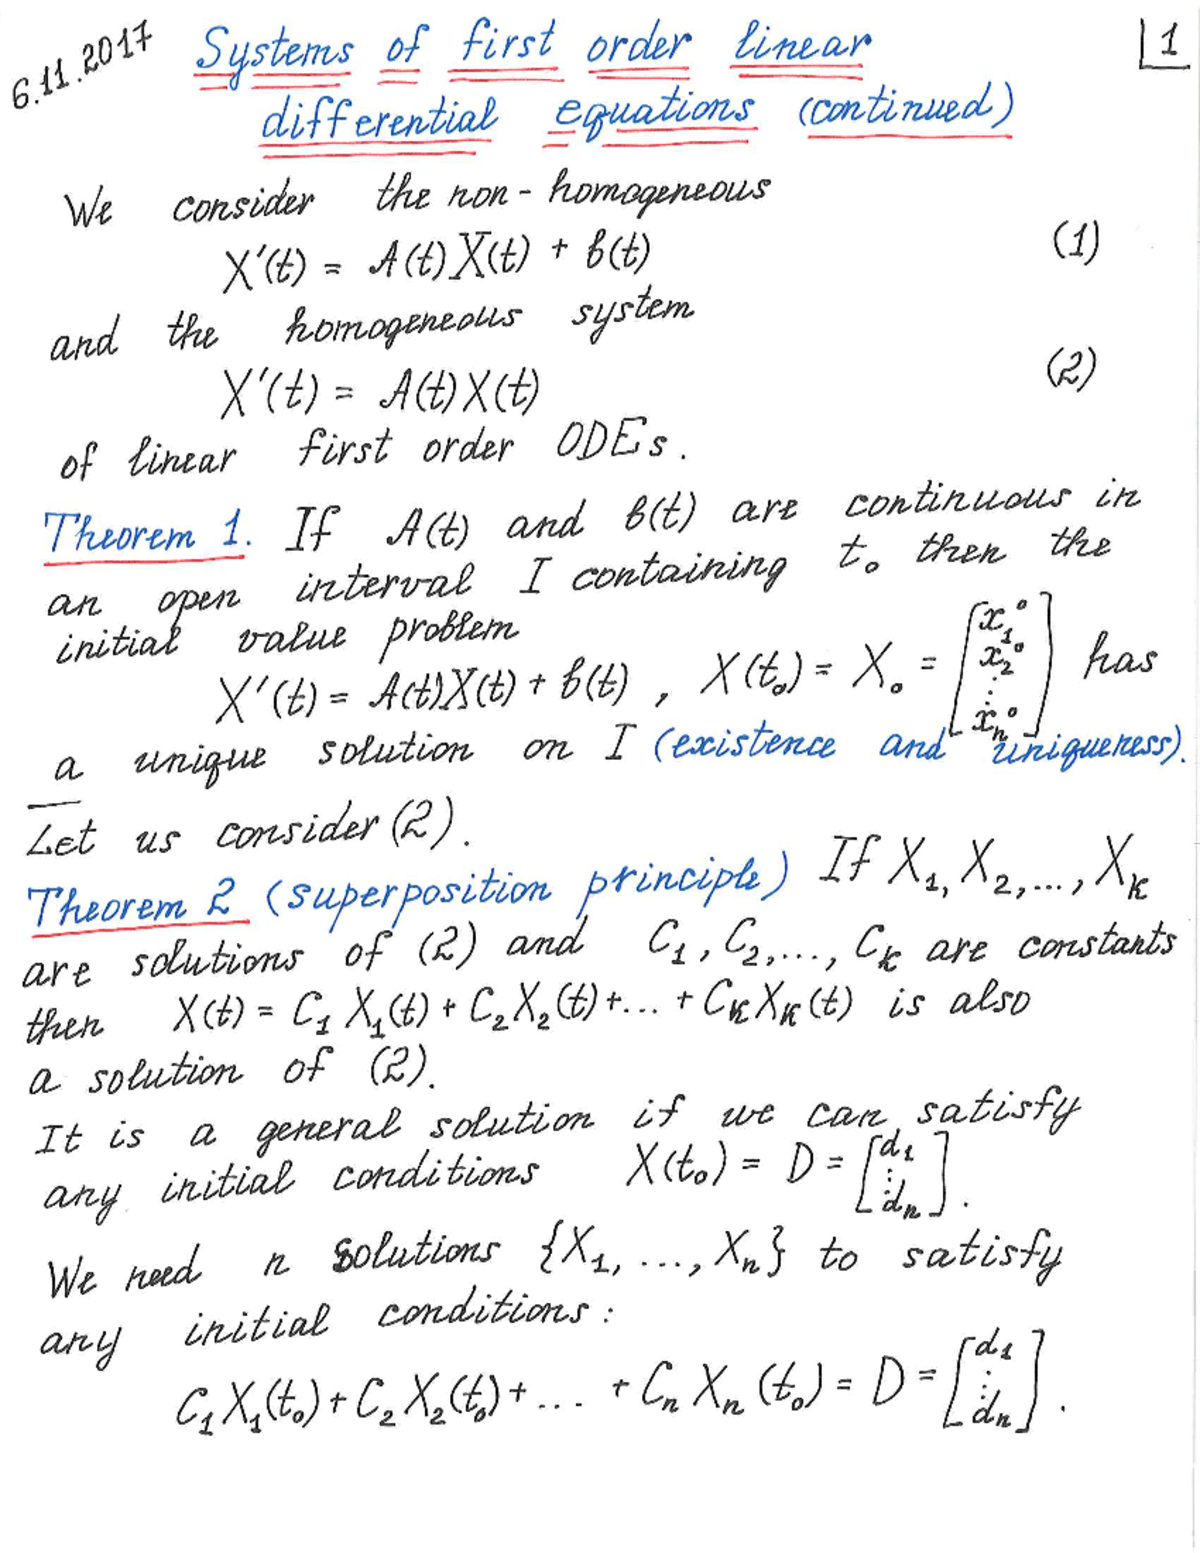 6.11.2017
Systems of first order linear
1
differential equations (continued)
We consider the non-homogeneous
X'(t) = A(t)X(t) + b(t) (1)
and the homogeneous system
X'(t) = A(t)X(t) (2)
of linear first order ODEs.
Theorem 1. If A(t) and b(t) are continuous in
an open interval I containing t₀ then the
initial value problem
X'(t) = A(t)X(t) + b(t), X(t₀) = X₀ = [x₁⁰ x₂⁰ ⋮ xₙ⁰] has
a unique solution on I (existence and uniqueness).
Let us consider (2).
Theorem 2 (superposition principle) If X₁, X₂, ..., Xₖ
are solutions of (2) and C₁, C₂, ..., Cₖ are constants
then X(t) = C₁X₁(t) + C₂X₂(t) + ... + CₖXₖ(t) is also
a solution of (2).
It is a general solution if we can satisfy
any initial conditions X(t₀) = D = [d₁ ⋮ dₙ].
We need n solutions {X₁, ..., Xₙ} to satisfy
any initial conditions:
C₁X₁(t₀) + C₂X₂(t₀) + ... + CₙXₙ(t₀) = D = [d₁ ⋮ dₙ].